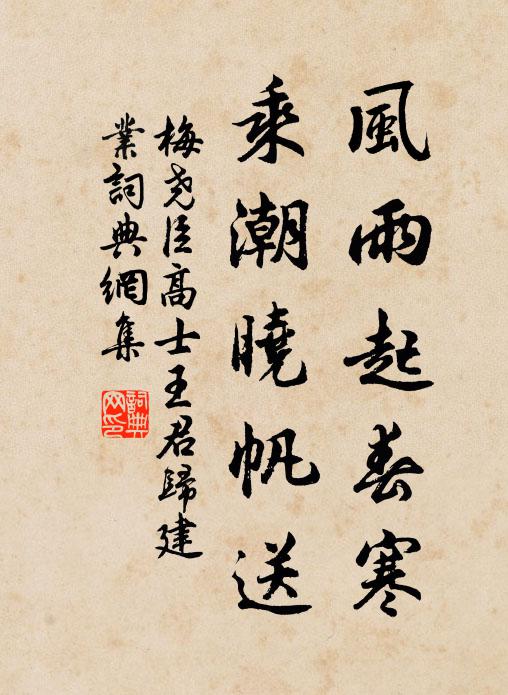 風雨起春寒
乘潮曉帆送
梅尭臣高士王君歸建
業詞典網集
詞典
网印